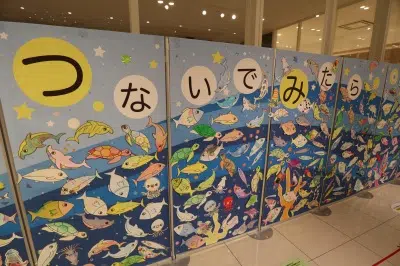 つないでみたら